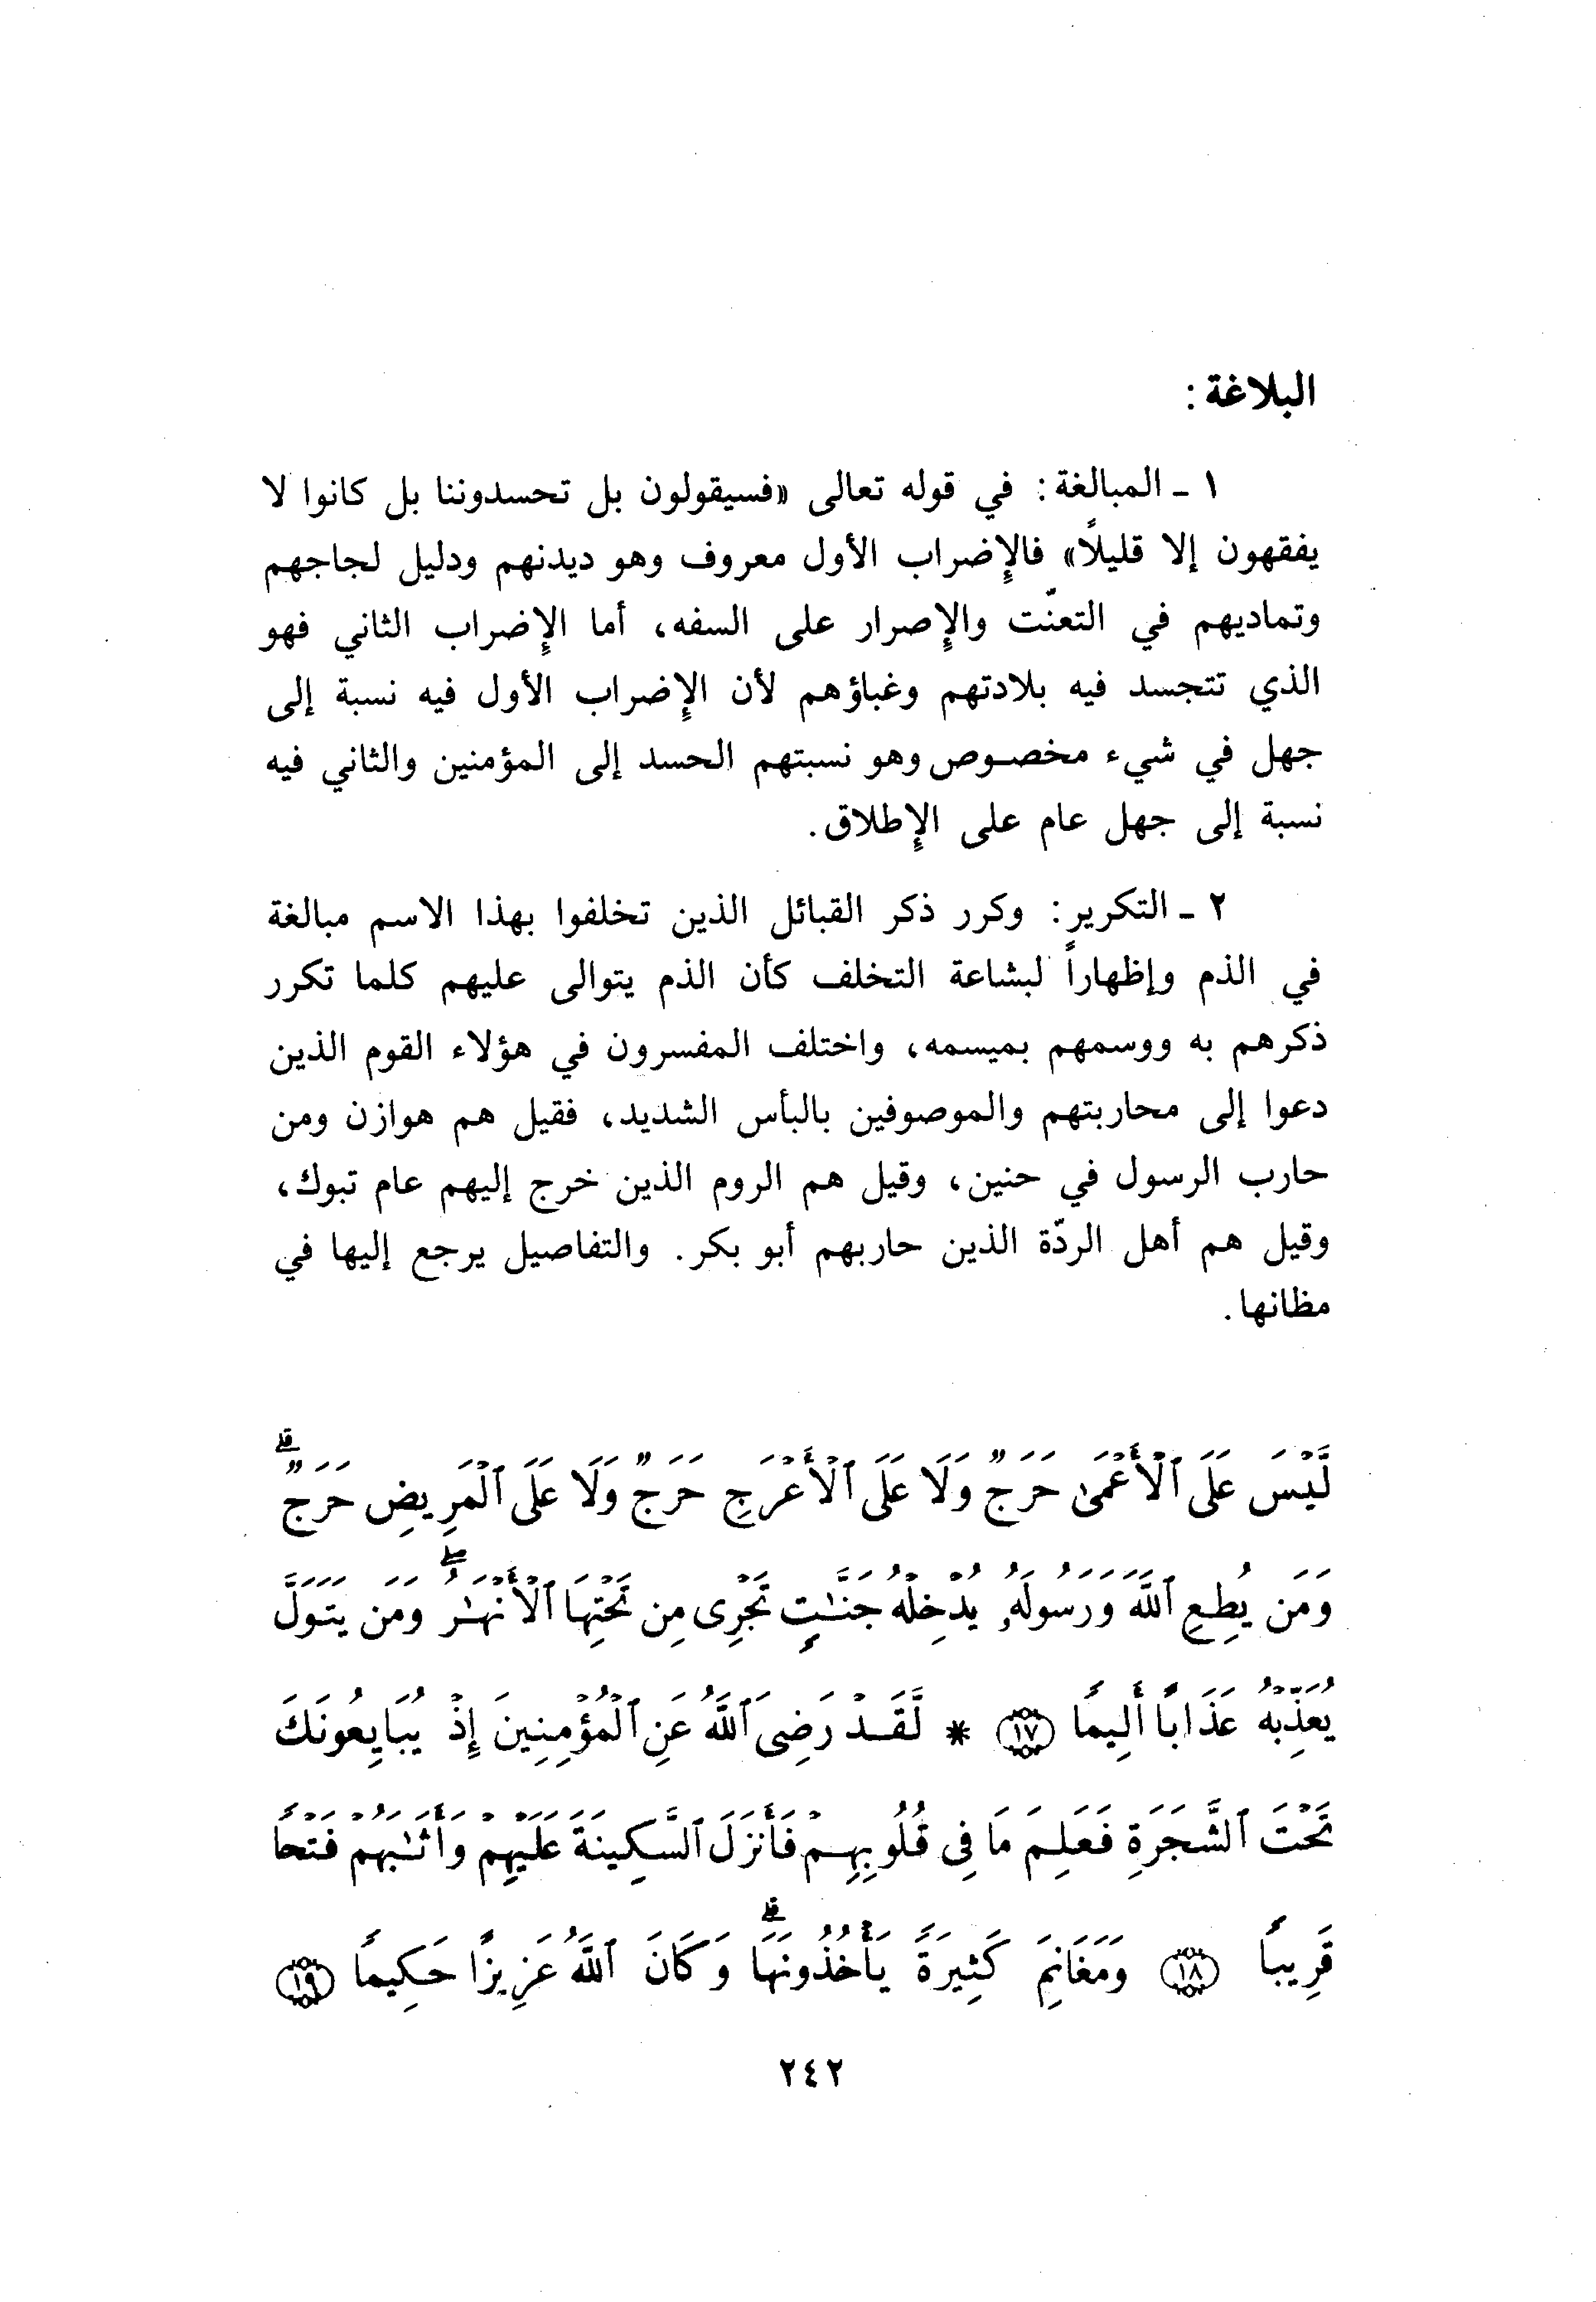 البلاغة :
١ ـ المبالغة : في قوله تعالى «فسيقولون بل تحسدوننا بل كانوا لا
يفقهون إلا قليلاً» فالإضراب الأول معروف وهو ديدنهم ودليل لجاجهم
وتماديهم في التعنّت والإصرار على السفه، أما الإضراب الثاني فهو
الذي تتجسد فيه بلادتهم وغباؤهم لأن الإضراب الأول فيه نسبة إلى
جهل في شيء مخصوص وهو نسبتهم الحسد إلى المؤمنين والثاني فيه
نسبة إلى جهل عام على الإطلاق .
٢ ـ التكرير : وكرر ذكر القبائل الذين تخلفوا بهذا الاسم مبالغة
في الذم وإظهاراً لبشاعة التخلف كأن الذم يتوالى عليهم كلما تكرر
ذكرهم به ووسمهم بميسمه، واختلف المفسرون في هؤلاء القوم الذين
دعوا إلى محاربتهم والموصوفين بالبأس الشديد، فقيل هم هوازن ومن
حارب الرسول في حنين، وقيل هم الروم الذين خرج إليهم عام تبوك،
وقيل هم أهل الردّة الذين حاربهم أبو بكر. والتفاصيل يرجع إليها في
مظانها .
لَّيْسَ عَلَى ٱلْأَعْمَىٰ حَرَجٌ وَلَا عَلَى ٱلْأَعْرَجِ حَرَجٌ وَلَا عَلَى ٱلْمَرِيضِ حَرَجٌ ۗ
وَمَن يُطِعِ ٱللَّهَ وَرَسُولَهُۥ يُدْخِلْهُ جَنَّٰتٍ تَجْرِى مِن تَحْتِهَا ٱلْأَنْهَٰرُ ۖ وَمَن يَتَوَلَّ
يُعَذِّبْهُ عَذَابًا أَلِيمًا ١٧ * لَّقَدْ رَضِىَ ٱللَّهُ عَنِ ٱلْمُؤْمِنِينَ إِذْ يُبَايِعُونَكَ
تَحْتَ ٱلشَّجَرَةِ فَعَلِمَ مَا فِى قُلُوبِهِمْ فَأَنزَلَ ٱلسَّكِينَةَ عَلَيْهِمْ وَأَثَٰبَهُمْ فَتْحًا
قَرِيبًا ١٨ وَمَغَانِمَ كَثِيرَةً يَأْخُذُونَهَا ۗ وَكَانَ ٱللَّهُ عَزِيزًا حَكِيمًا ١٩
٢٤٢